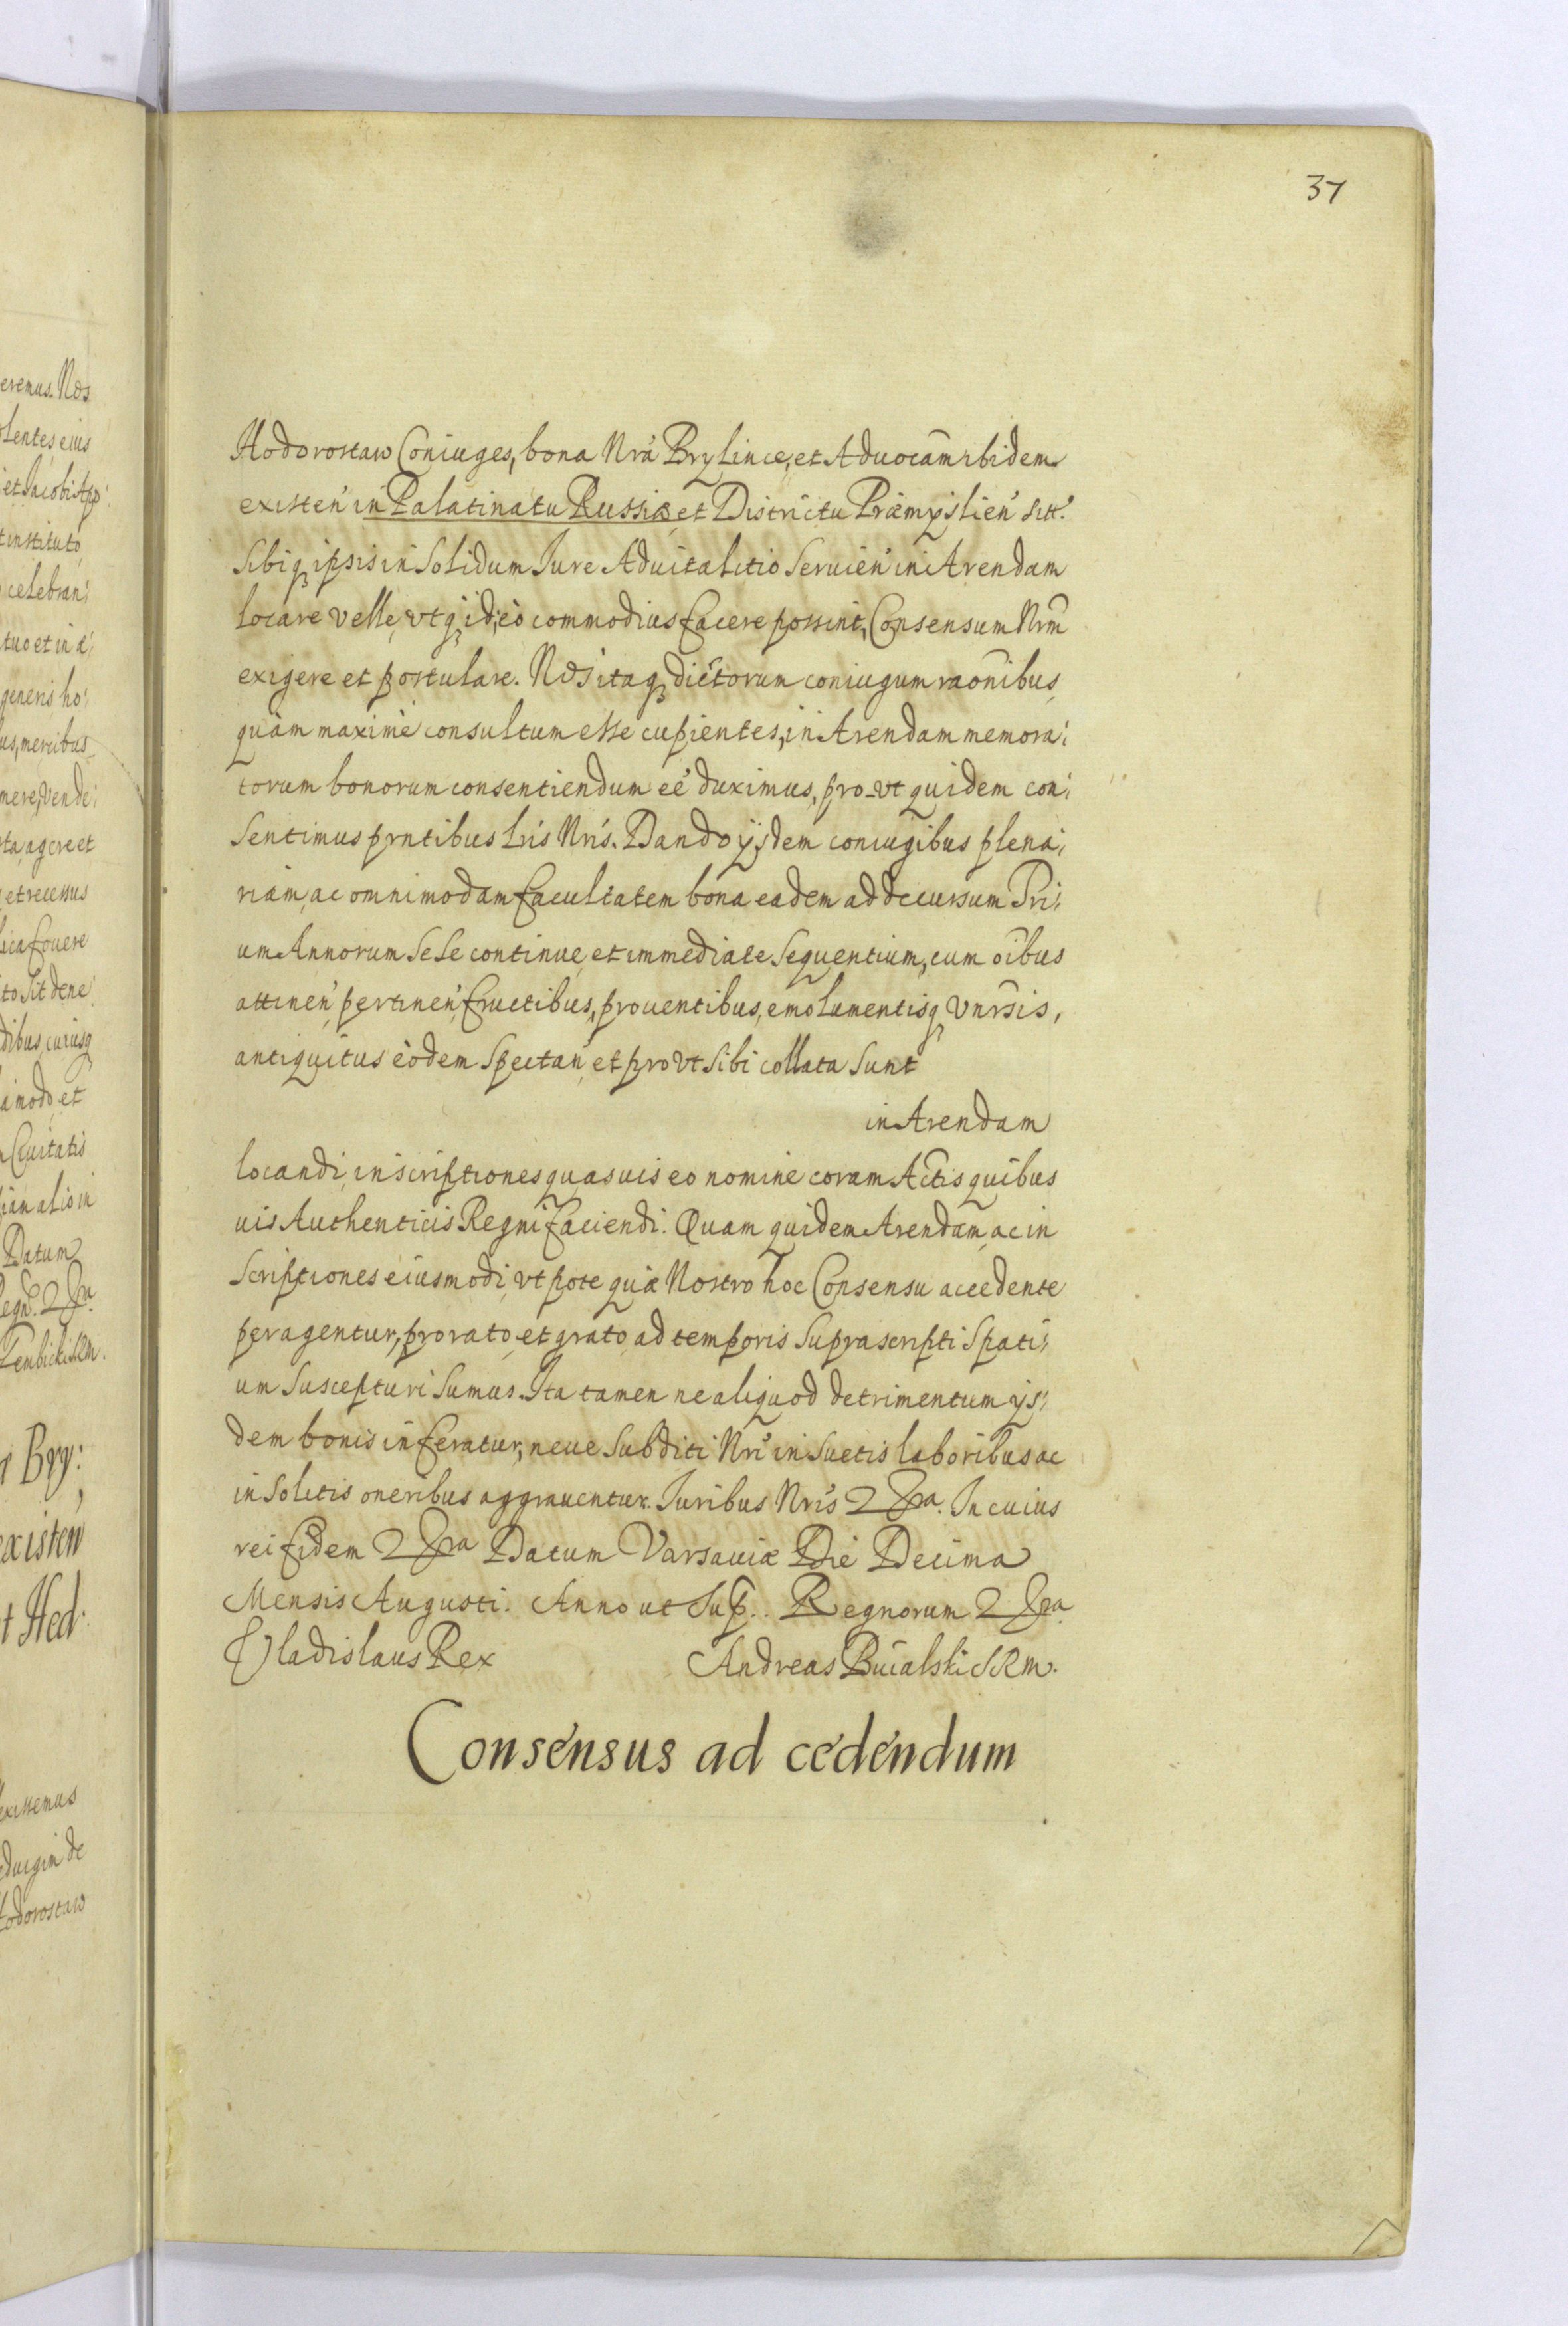 37
Hodorostaw Coniuges, bona Nrá Brylince, et Aduocãm ibidem
existen' in Palatinatu Russiæ et Districtu Præmysлien' sitt.
sibiq ipsis in solidum Iure Aduitalitio seruien' in Arendam
locare velle, vtq id eò commodius facere possint, Consensum Nrm̃
exigere et postulare. Nos itaq dictorum coniugum raoñibus
quàm maximè consultum esse cupientes, in Arendam memora:
torum bonorum consentiendum eé duximus, pro-vt quidem con:
sentimus prntibus Lris Nris. Dando ijsdem coniugibus plena:
riam, ac omnimodam facultatem bona eadem ad decursum Tri:
um Annorum sese continue et immediate sequentium, cum oĩbus
attinen' pertinen' fructibus, prouentibus, emolumentisq vnrsis,
antiquitus eòdem spectan' et provt sibi collata sunt
in Arendam
locandi, inscriptiones quasuis eo nomine coram Actis quibus
uis Authenticis Regni faciendi. Quam quidem Arendam, ac in
scriptiones eiusmodi, vt pote quæ Nostro hoc Consensu accedente
peragentur, pro rato et grato ad temporis suprascripti spati:
um suscepturi sumus. Ita tamen ne aliquod detrimentum ijs:
dem bonis inferatur, neue subditi Nri insuetis laboribus ac
insolitis oneribus aggrauentur. Iuribus Nris 2 Xra. In cuius
rei fidem 2 Xra Datum Varsauiæ Die Decima
Mensis Augusti. Anno ut sup. Regnorum 2 Xra
Vladislaus Rex Andreas Buialski SRM.
Consensus ad cedendum